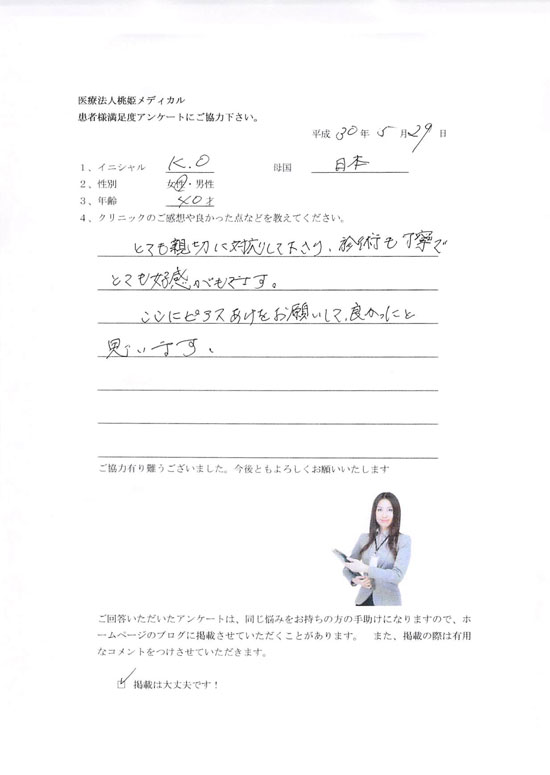 医療法人桃姫メディカル
患者様満足度アンケートにご協力下さい。
平成 30 年 5 月 29 日
1、イニシャル K.O 母国 日本
2、性別 女性・男性
3、年齢 40 才
4、クリニックのご感想や良かった点などを教えてください。
とても親切に対応して下さり、施術も丁寧で
とても好感がもてます。
ここにピアスあけをお願いして、良かったと
思います、
ご協力有り難うございました。今後ともよろしくお願いいたします
ご回答いただいたアンケートは、同じ悩みをお持ちの方の手助けになりますので、ホ
ームページのブログに掲載させていただくことがあります。 また、掲載の際は有用
なコメントをつけさせていただきます。
☑ 掲載は大丈夫です！